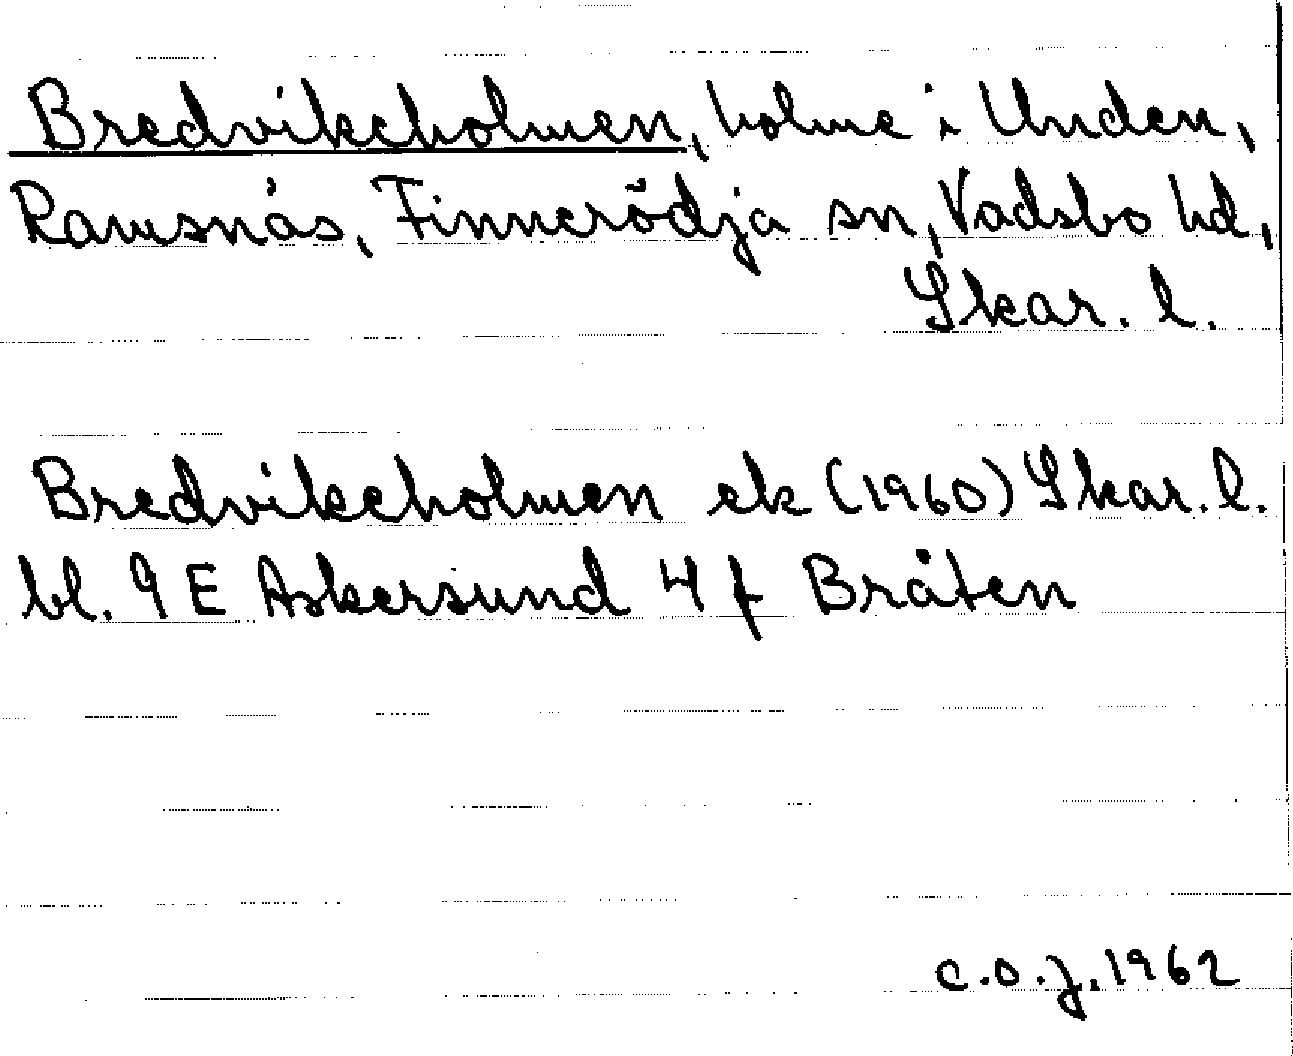 Bredvikeholmen, holme i Unden,
Ramsnäs, Finnerödja sn, Vadsbo hd,
Skar. l.
Bredvikeholmen ek (1960) Skar. l.
bl. 9 E Askersund 4 f Bråten
C.O.J. 1962